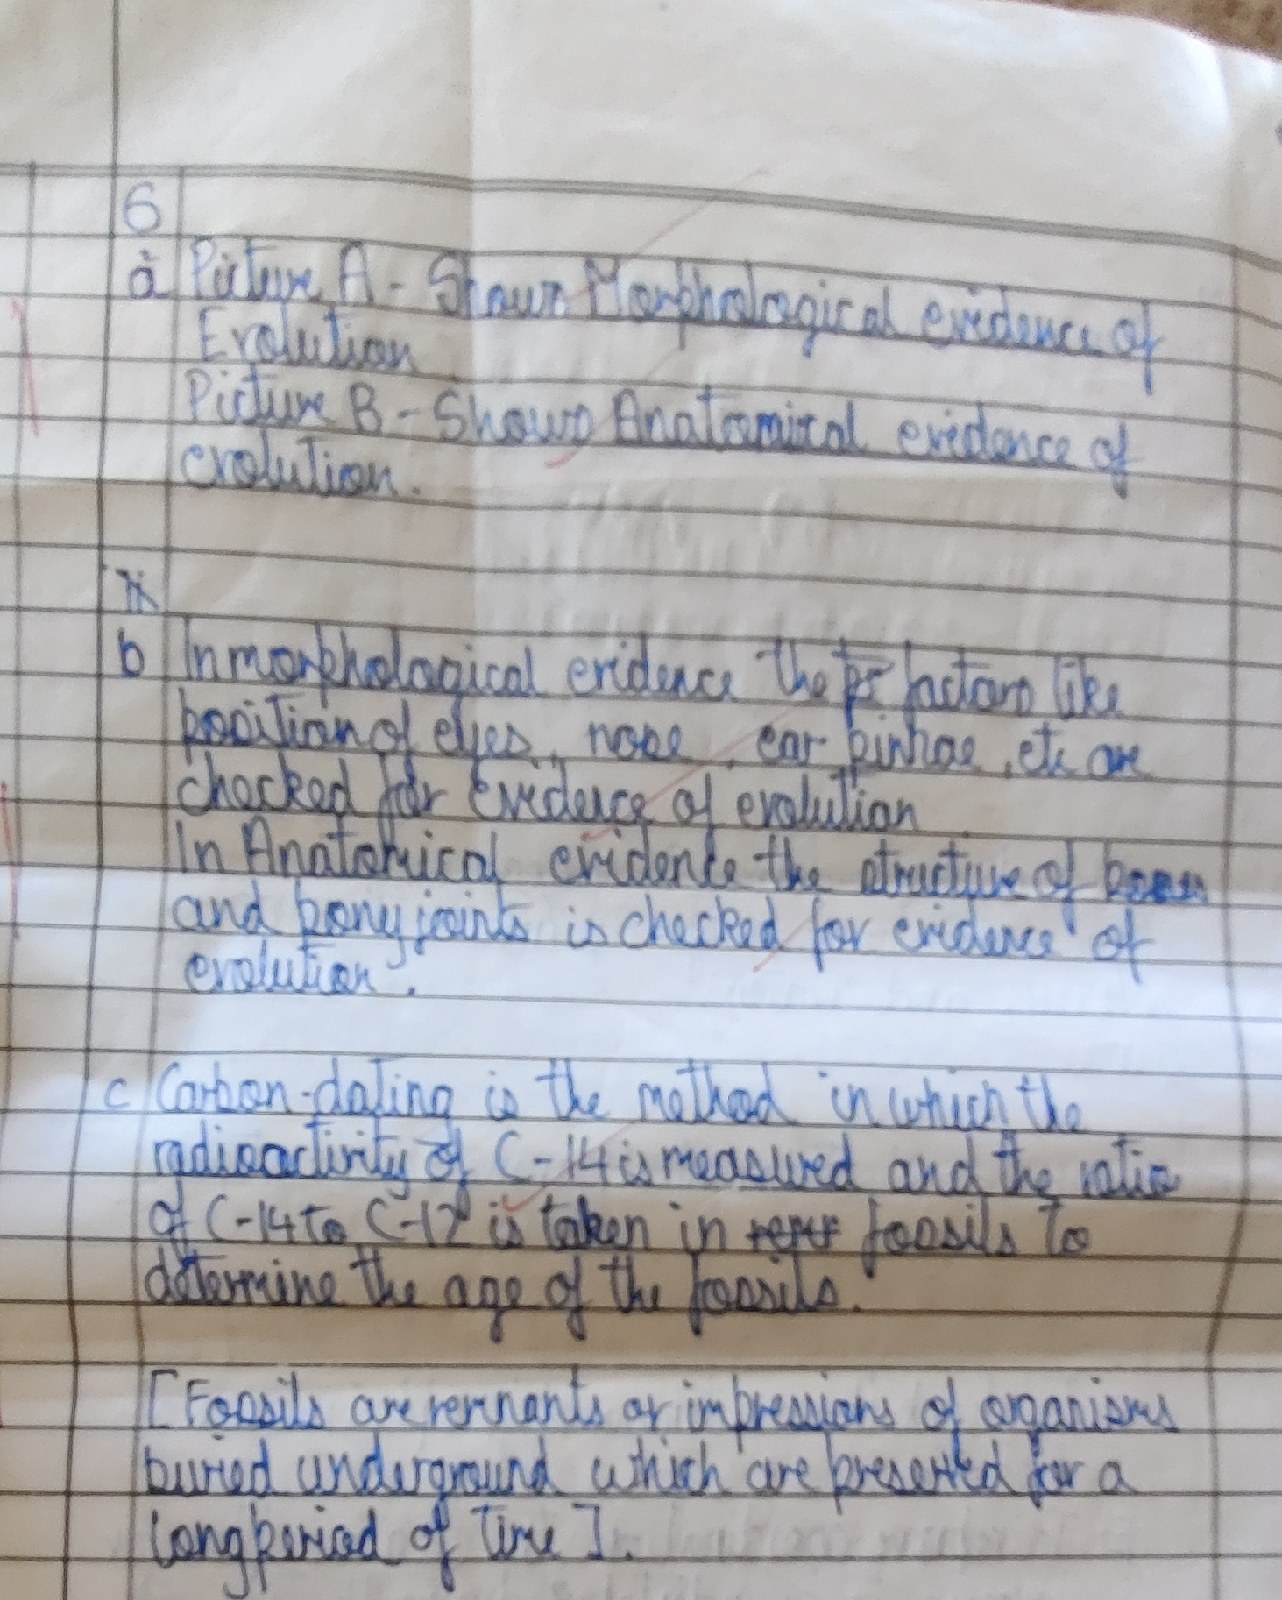 6
a Picture A - Shows Morphological evidence of
Evolution
Picture B - Shows Anatomical evidence of
evolution.
b In morphological evidence the factors like
position of eyes, nose, ear pinnae, etc are
checked for evidence of evolution
In Anatomical evidence the structure of bones
and bony joints is checked for evidence of
evolution.
c Carbon-dating is the method in which the
radioactivity of C-14 is measured and the ratio
of C-14 to C-12 is taken in fossils to
determine the age of the fossils.
[Fossils are remnants or impressions of organisms
buried underground which are preserved for a
long period of time].